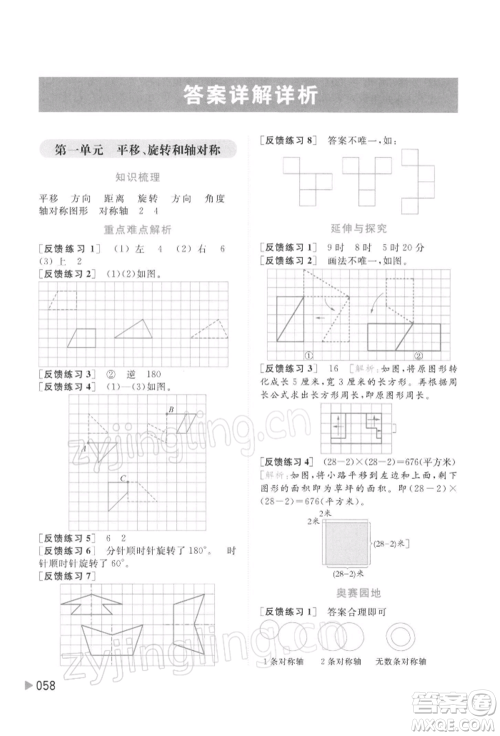 答案详解详析
第一单元 平移、旋转和轴对称
知识梳理
平移 方向 距离 旋转 方向 角度
轴对称图形 对称轴 2 4
重点难点解析
[反馈练习 1] (1)左 4 (2)右 6
(3)上 2
[反馈练习 2] (1)(2)如图。
[反馈练习 3] ② 逆 180
[反馈练习 4] (1)—(3)如图。
B
A
C
[反馈练习 5] 6 2
[反馈练习 6] 分针顺时针旋转了 180°。 时
针顺时针旋转了60°。
[反馈练习 7]
058
[反馈练习 8] 答案不唯一,如:
延伸与探究
[反馈练习 1] 9 时 8 时 5 时 20 分
[反馈练习 2] 画法不唯一,如:
① ②
[反馈练习 3] 16 [解析:如图,将原图形转
化成长 5 厘米,宽 3 厘米的长方形。再根据周
长公式求出长方形周长,即原图形周长。]
[反馈练习 4] (28-2)×(28-2)=676(平方米)
[解析:如图,将小路平移到大正方形边上,
则剩余的面积即为草坪的面积,即(28-2)×
(28-2)=676(平方米)。
2米
2米
(28-2)米
(28-2)米
奥赛园地
[反馈练习 1] 答案合理即可
1 条对称轴 2 条对称轴 无数条对称轴
zyjingling.cn
zyjingling.cn
答案圈
MXQE.COM